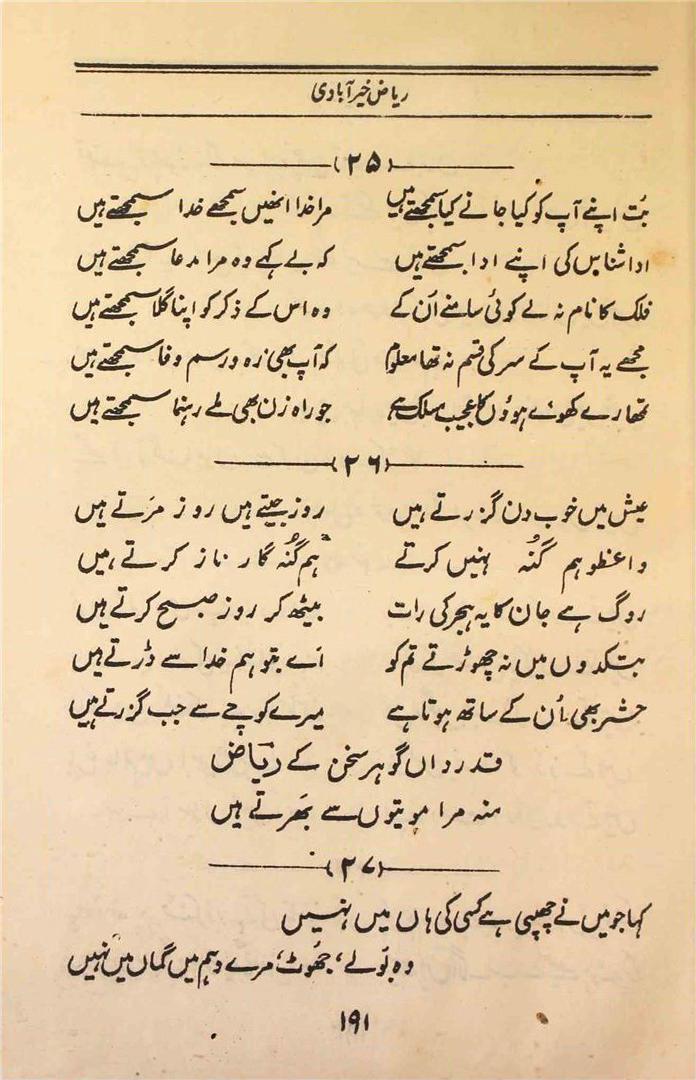 ریاض خیرآبادی
(۲۵)
بُت اپنے آپ کو کیا جانے کیا سمجھتے ہیں مرا خدا انھیں سمجھے خدا سمجھتے ہیں
ادا شناس کی اپنے ادا سمجھتے ہیں کہ بے کہے وہ مرا مدعا سمجھتے ہیں
فلک کا نام نہ لے کوئی سامنے اُن کے وہ اس کے ذکر کو اپنا گلا سمجھتے ہیں
مجھے یہ آپ کے سر کی قسم نہ تھا معلوم کہ آپ بھی رہ و رسم وفا سمجھتے ہیں
تمھارے کھوئے ہوؤں کا عجیب مسلک ہے جو راہ زن بھی ملے رہنما سمجھتے ہیں
(۲۶)
عیش میں خوب دن گزرتے ہیں روز جیتے ہیں روز مَرتے ہیں
واعظو ہم گنُہ نہیں کرتے ہم گنُہ گار ناز کرتے ہیں
روگ ہے جان کا یہ ہجر کی رات بیٹھ کر روز صبح کرتے ہیں
بتکدوں میں نہ چھوڑتے تم کو اَے بتو ہم خدا سے ڈرتے ہیں
حشر بھی اُن کے ساتھ ہوتا ہے میرے کوچے سے جب گزرتے ہیں
قدرداں گوہر سخن کے ریاؔض
منہ مرا موتیوں سے بَھرتے ہیں
(۲۷)
کہا جو میں نے چھپی ہے کسی کی ہاں میں نہیں
وہ بولے، جھُوٹ، مرے وہم میں گماں میں نہیں
۱۹۱